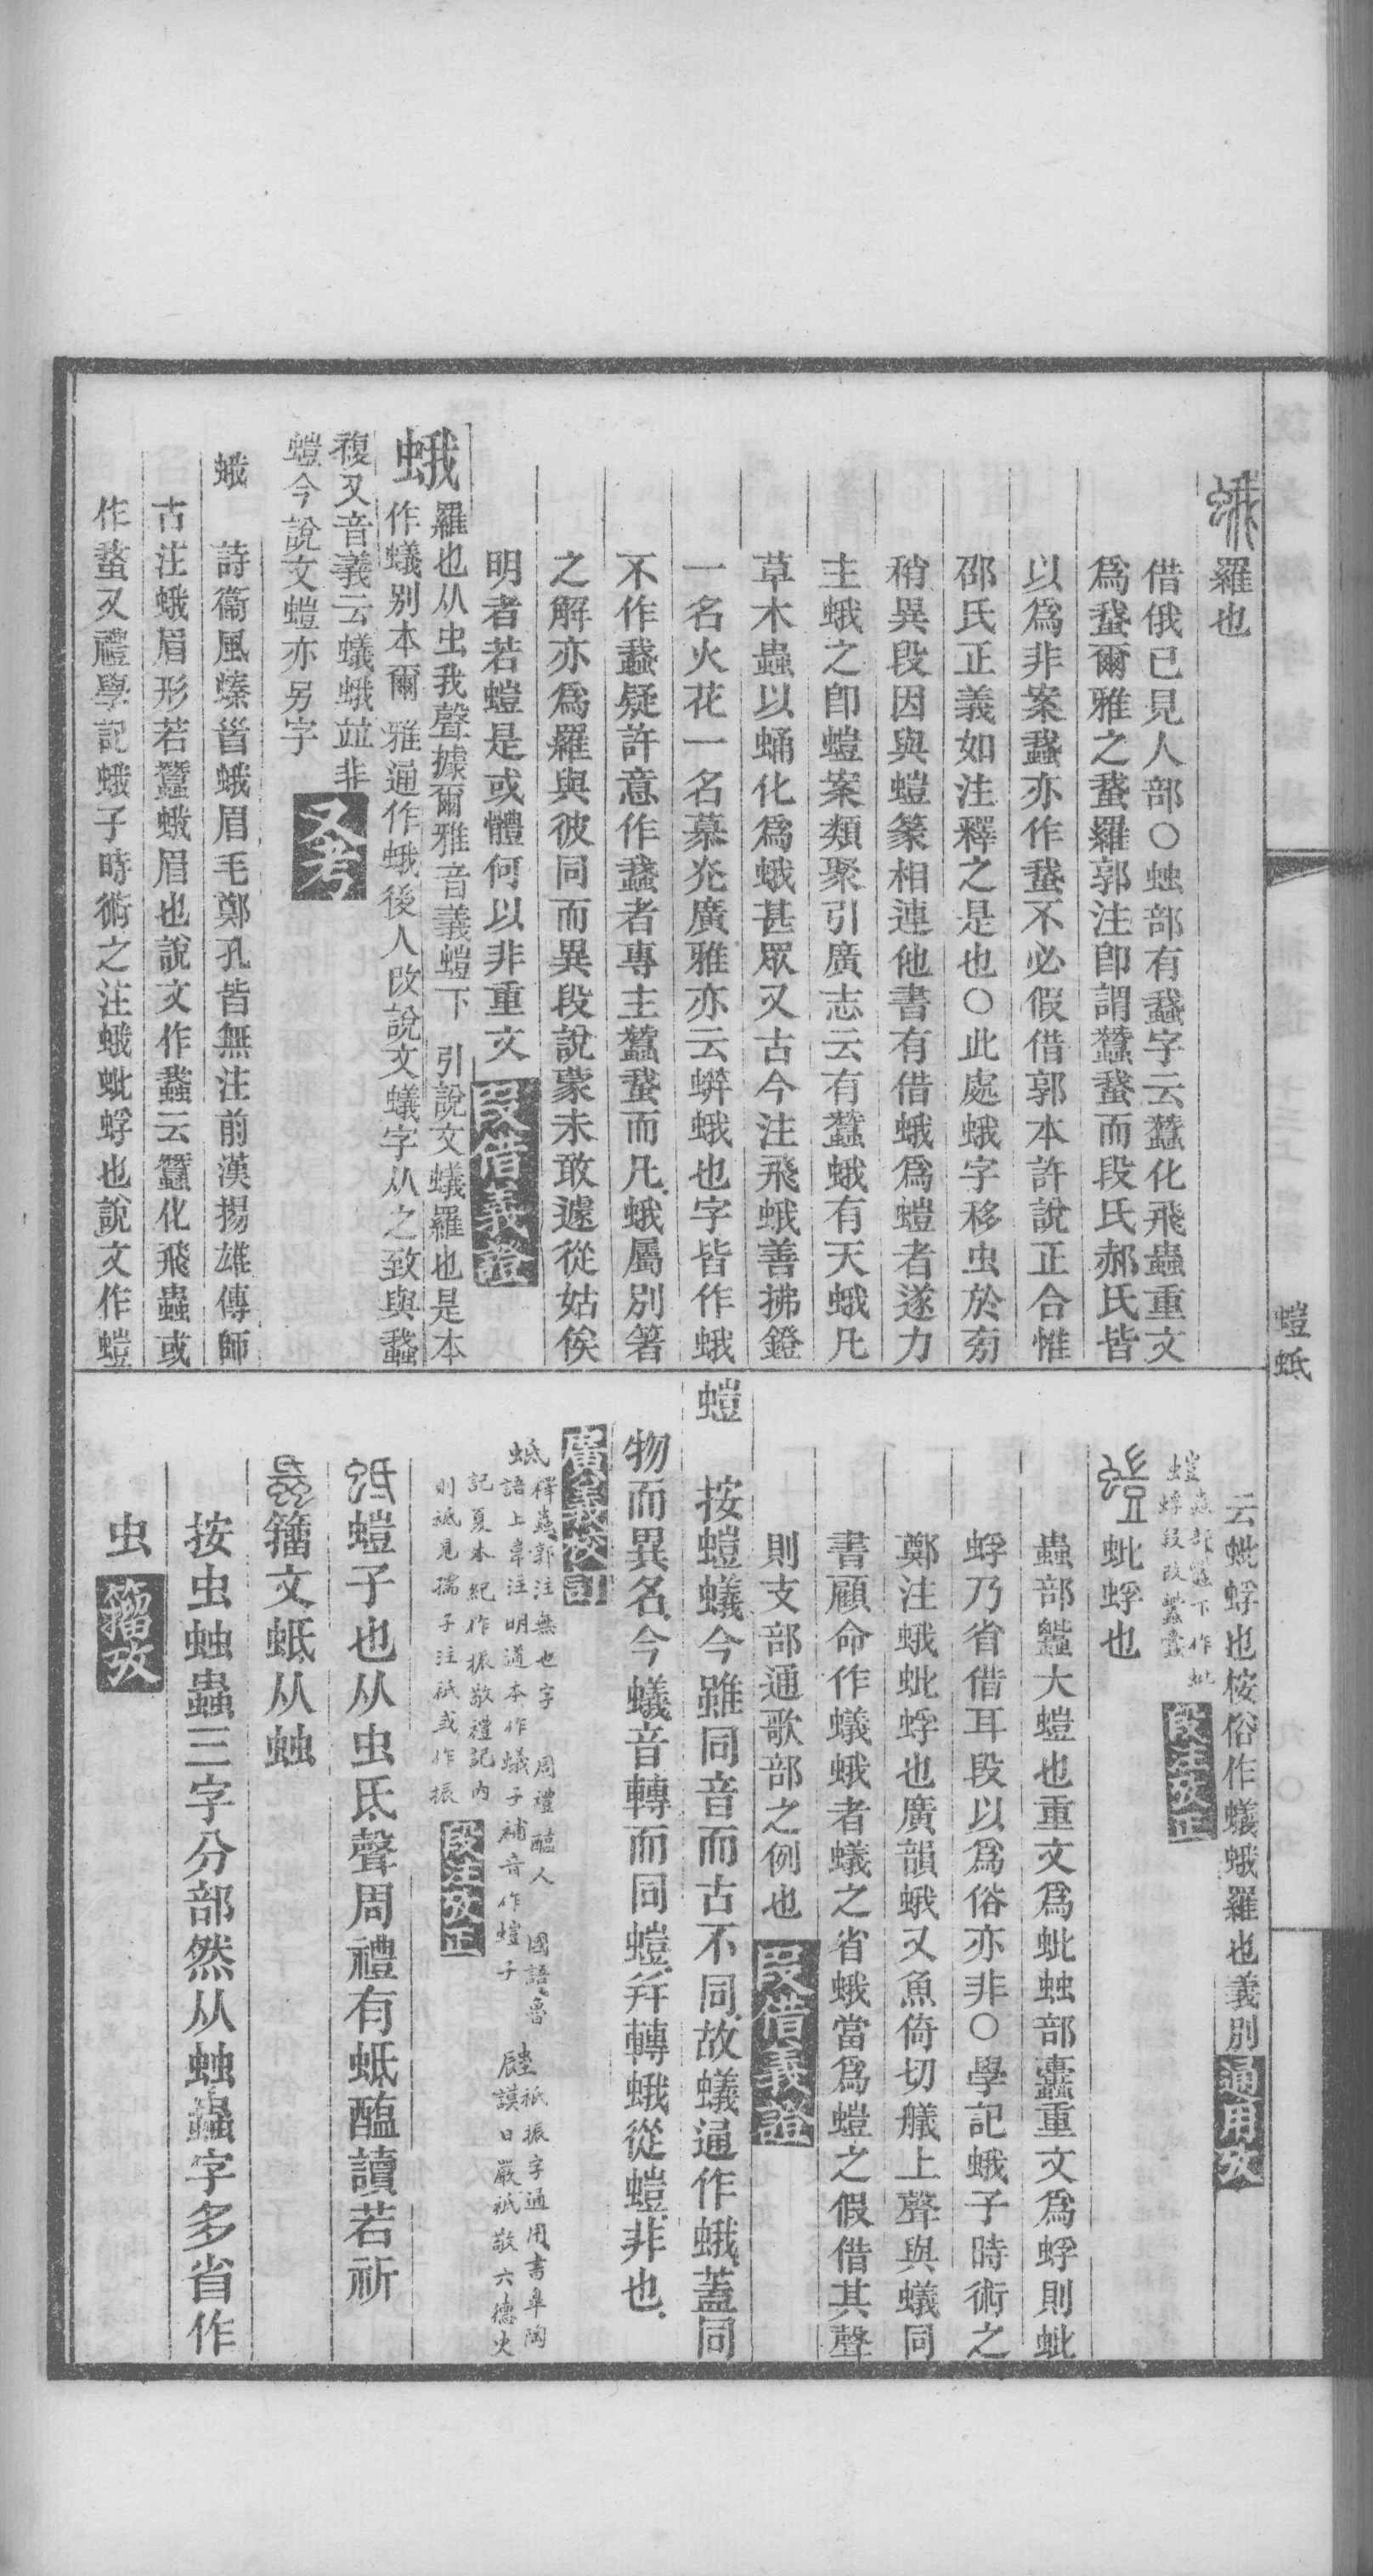 蛾羅也
借俄已見人部○䖵部有䖸字云蠶化飛蟲重文
爲蝅爾雅之蝅羅郭注卽謂蠶蝅而段氏郝氏皆
以爲非案䖸亦作蝅不必假借郭本許說正合惟
邵氏正義如注釋之是也○此處蛾字移虫於旁
稍異段因與螘篆相連他書有借蛾爲螘者遂力
主蛾之卽螘案類聚引廣志云有蠶蛾有天蛾凡
草木蟲以蛹化爲蛾甚眾又古今注飛蛾善拂鐙
一名火花一名慕光廣雅亦云蛢蛾也字皆作蛾
不作䖸疑許意作䖸者專主蠶蝅而凡蛾屬別箸
之解亦爲羅與彼同而異段說蒙未敢遽從姑俟
明者若螘是或體何以非重文叚借義證
蛾
羅也从虫我聲據爾雅音義螘下 引說文蟻羅也是本
作蟻別本爾 雅通作蛾後人改說文蟻字从之致與䖸
複又音義云蟻蛾竝非
螘今說文螘亦另字
又考
蛾 詩衞風螓首蛾眉毛鄭孔皆無注前漢揚雄傳師
古注蛾眉形若蠶蛾眉也說文作䖸云蠶化飛蟲或
作蝅又禮學記蛾子時術之注蛾蚍蜉也說文作螘
螘 蚳
云蚍蜉也桉俗作蟻蛾羅也義別通用攷
段注攷正
螘蚍蜉也
蟲部䘇大螘也重文爲蚍䖵部蠹重文爲蜉則蚍
蜉乃省借耳段以爲俗亦非○學記蛾子時術之
鄭注蛾蚍蜉也廣韻蛾又魚倚切艤上聲與蟻同
書顧命作蟻蛾者蟻之省蛾當爲螘之假借其聲
則支部通歌部之例也叚借義證
螘 按螘蟻今雖同音而古不同故蟻通作蛾葢同
物而異名今蟻音轉而同螘幷轉蛾從螘非也
廣義校訂
蚳
釋蟲郭注無也字 周禮醢人 國語魯
語上韋注明道本作蟻子補音作螘子
祗振字通用書皋陶
謨日嚴祗敬六德史
記夏本紀作振敬禮記內
則祗見孺子注祗或作振段注攷正
蚳螘子也从虫氐聲周禮有蚳醢讀若祈
籀文蚳从䖵
按虫䖵蟲三字分部然从䖵蟲字多省作
虫籀攷